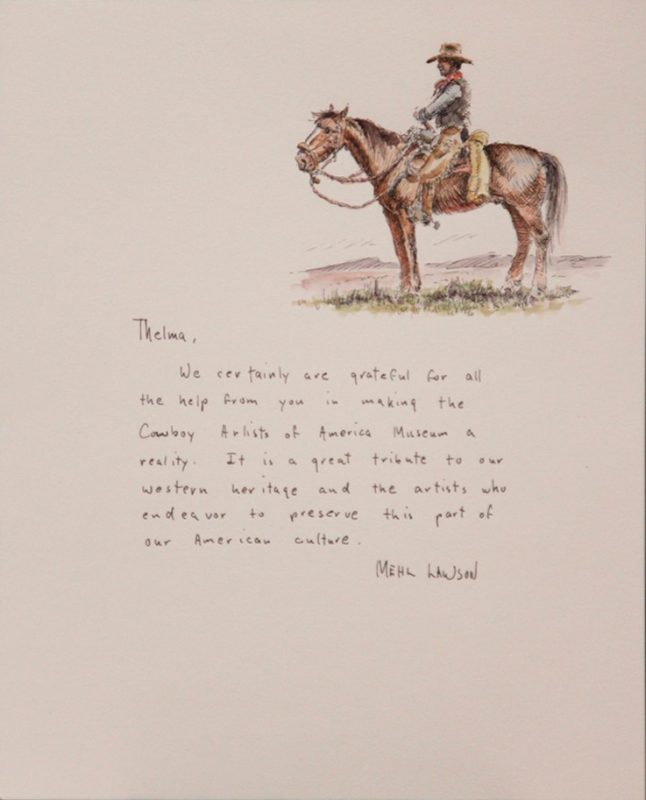 Thelma,
We certainly are grateful for all
the help from you in making the
Cowboy Artists of America Museum a
reality. It is a great tribute to our
western heritage and the artists who
endeavor to preserve this part of
our American culture.
MEHL LAWSON